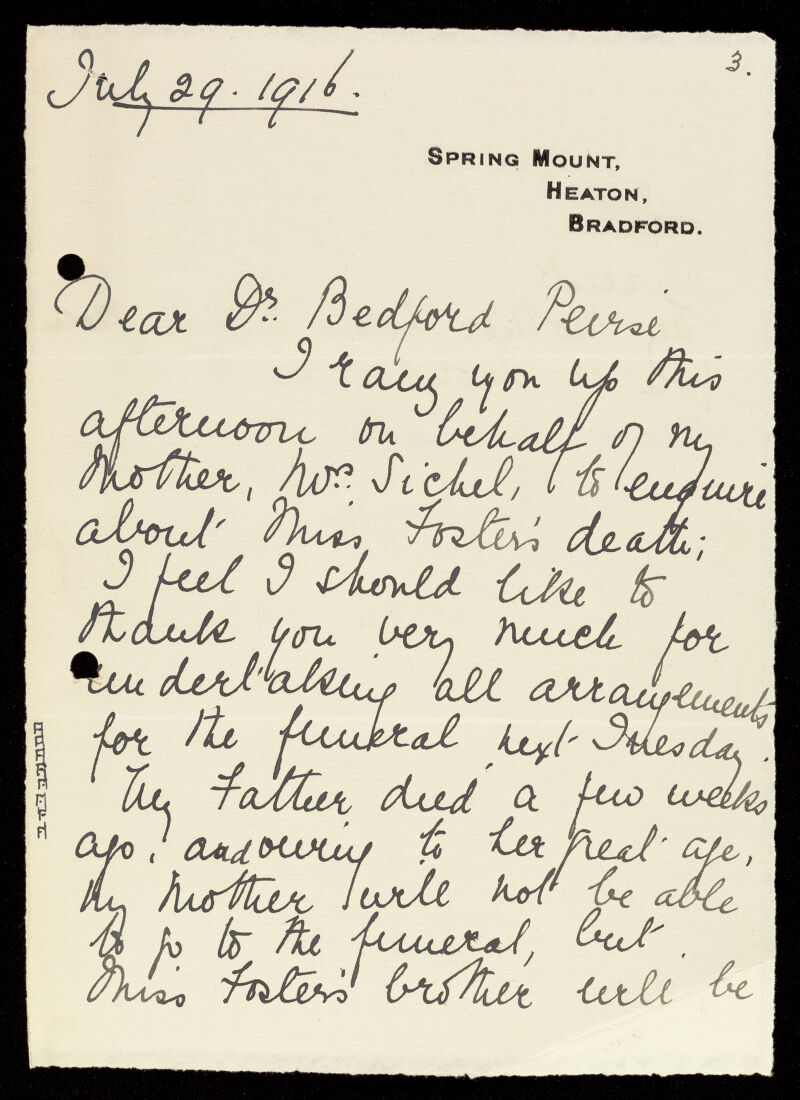 3.
July 29. 1916.
SPRING MOUNT,
HEATON,
BRADFORD.
Dear Dr. Bedford Peirse
I rang you up this
afternoon on behalf of my
Mother, Mrs. Sichel, to enquire
about Miss Foster's death;
I feel I should like to
thank you very much for
undertaking all arrangements
for the funeral next Tuesday.
My Father died a few weeks
ago, and owing to her great age,
my Mother will not be able
to go to the funeral, but
Miss Foster's brother will be